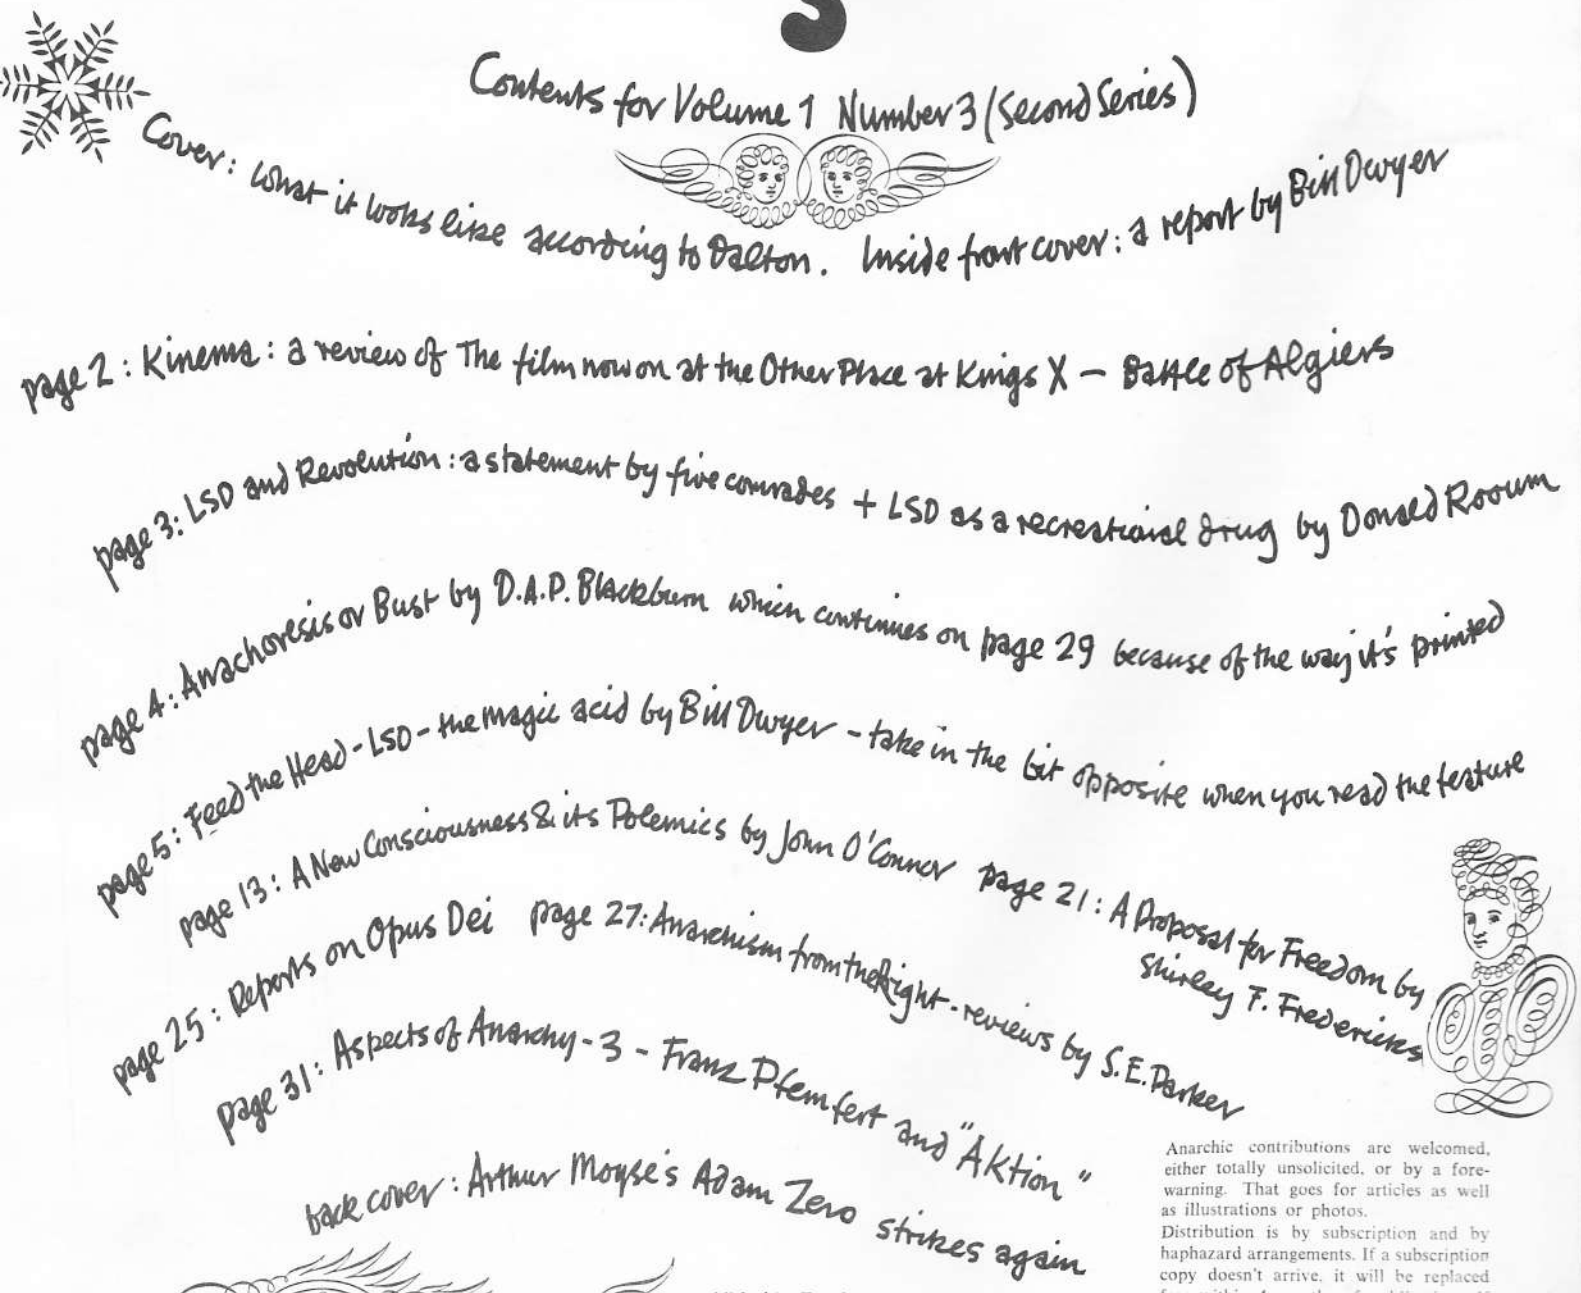 3
Contents for Volume 1 Number 3 (Second Series)
Cover: what it looks like according to Dalton. Inside front cover: a report by Bill Dwyer
page 2: Kinema: a review of The film now on at the Other Place at Kings X – Battle of Algiers
page 3: LSD and Revolution: a statement by five comrades + LSD as a recreational drug by Donald Rooum
page 4: Anachoresis or Bust by D.A.P. Blackburn which continues on page 29 because of the way it's printed
page 5: Feed the Head - LSD - the magic acid by Bill Dwyer - take in the bit opposite when you read the feature
page 13: A New Consciousness & its Polemics by John O'Connor page 21: A Proposal for Freedom by
Shirley F. Fredericks
page 25: Reports on Opus Dei page 27: Anarchism from the Right - reviews by S.E. Parker
page 31: Aspects of Anarchy - 3 - Franz Pfemfert and "Aktion"
back cover: Arthur Moyse's Adam Zero strikes again
Anarchic contributions are welcomed,
either totally unsolicited, or by a fore-
warning. That goes for articles as well
as illustrations or photos.
Distribution is by subscription and by
haphazard arrangements. If a subscription
copy doesn't arrive, it will be replaced